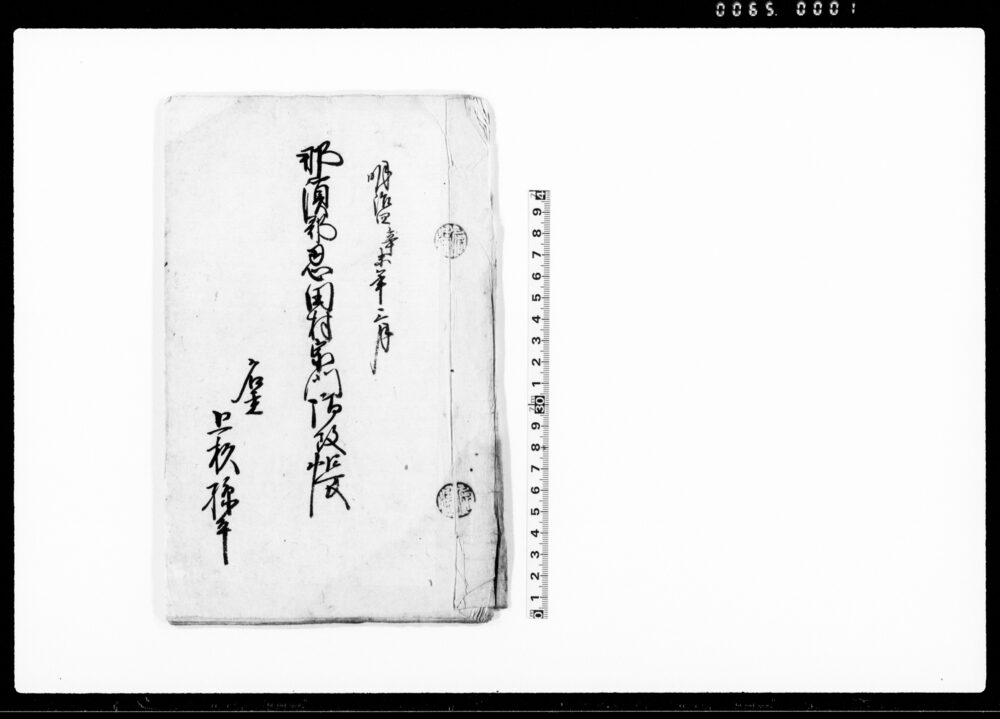 0065.0001
明治四辛未年三月
那須郡恩田村宗門改帳
上杦孫平
4
9
8
7
6
5
4
3
2
1
30
9
8
7
6
5
4
3
2
1
0